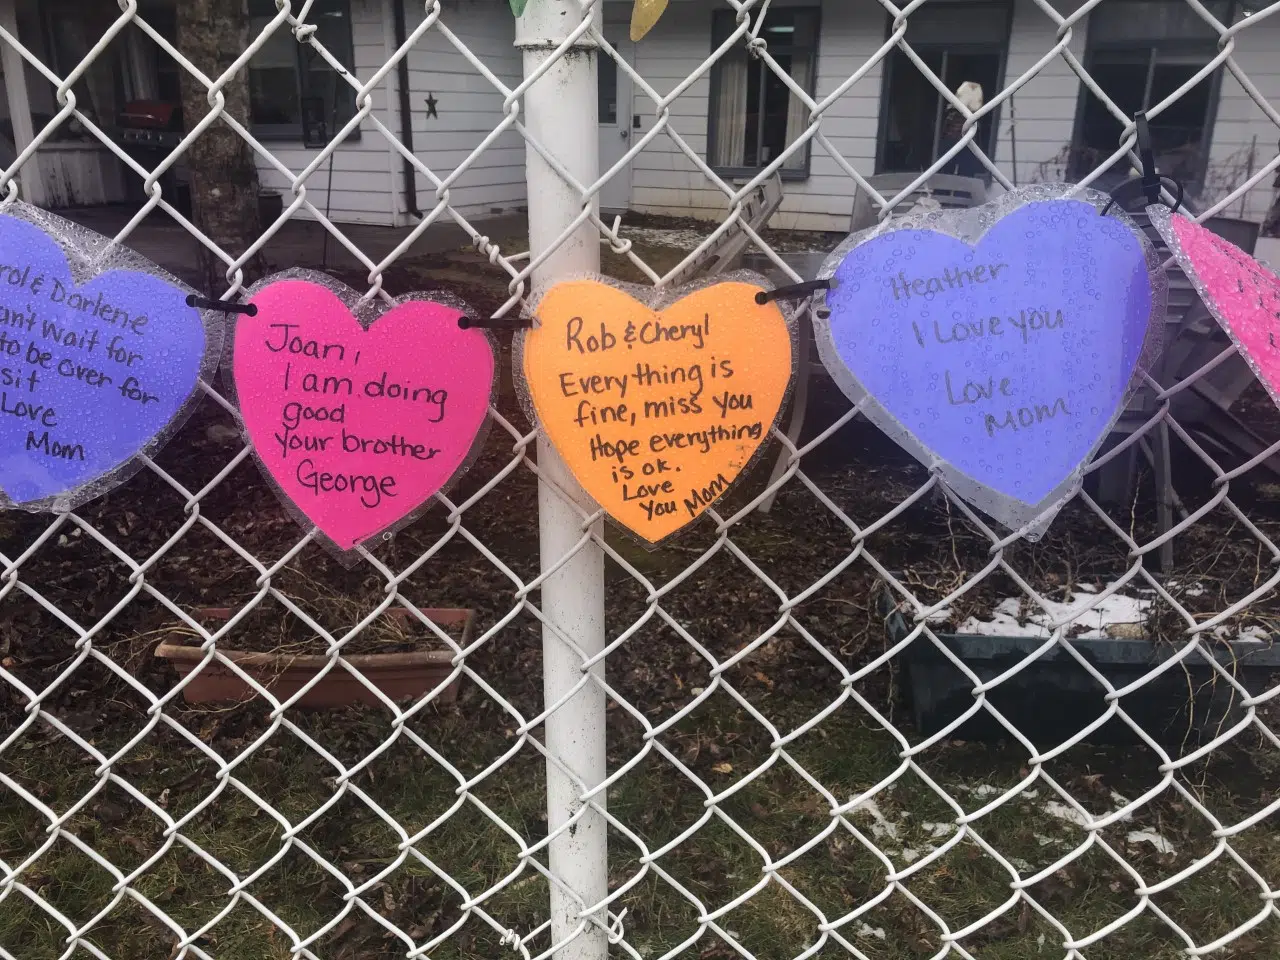 & Darlene
wait for
to be over for
Love
Mom
Joan,
I am doing
good
your brother
George
Rob & Cheryl
Everything is
fine, miss you
Hope everything
is ok.
Love
you Mom
Heather
I Love you
Love
Mom